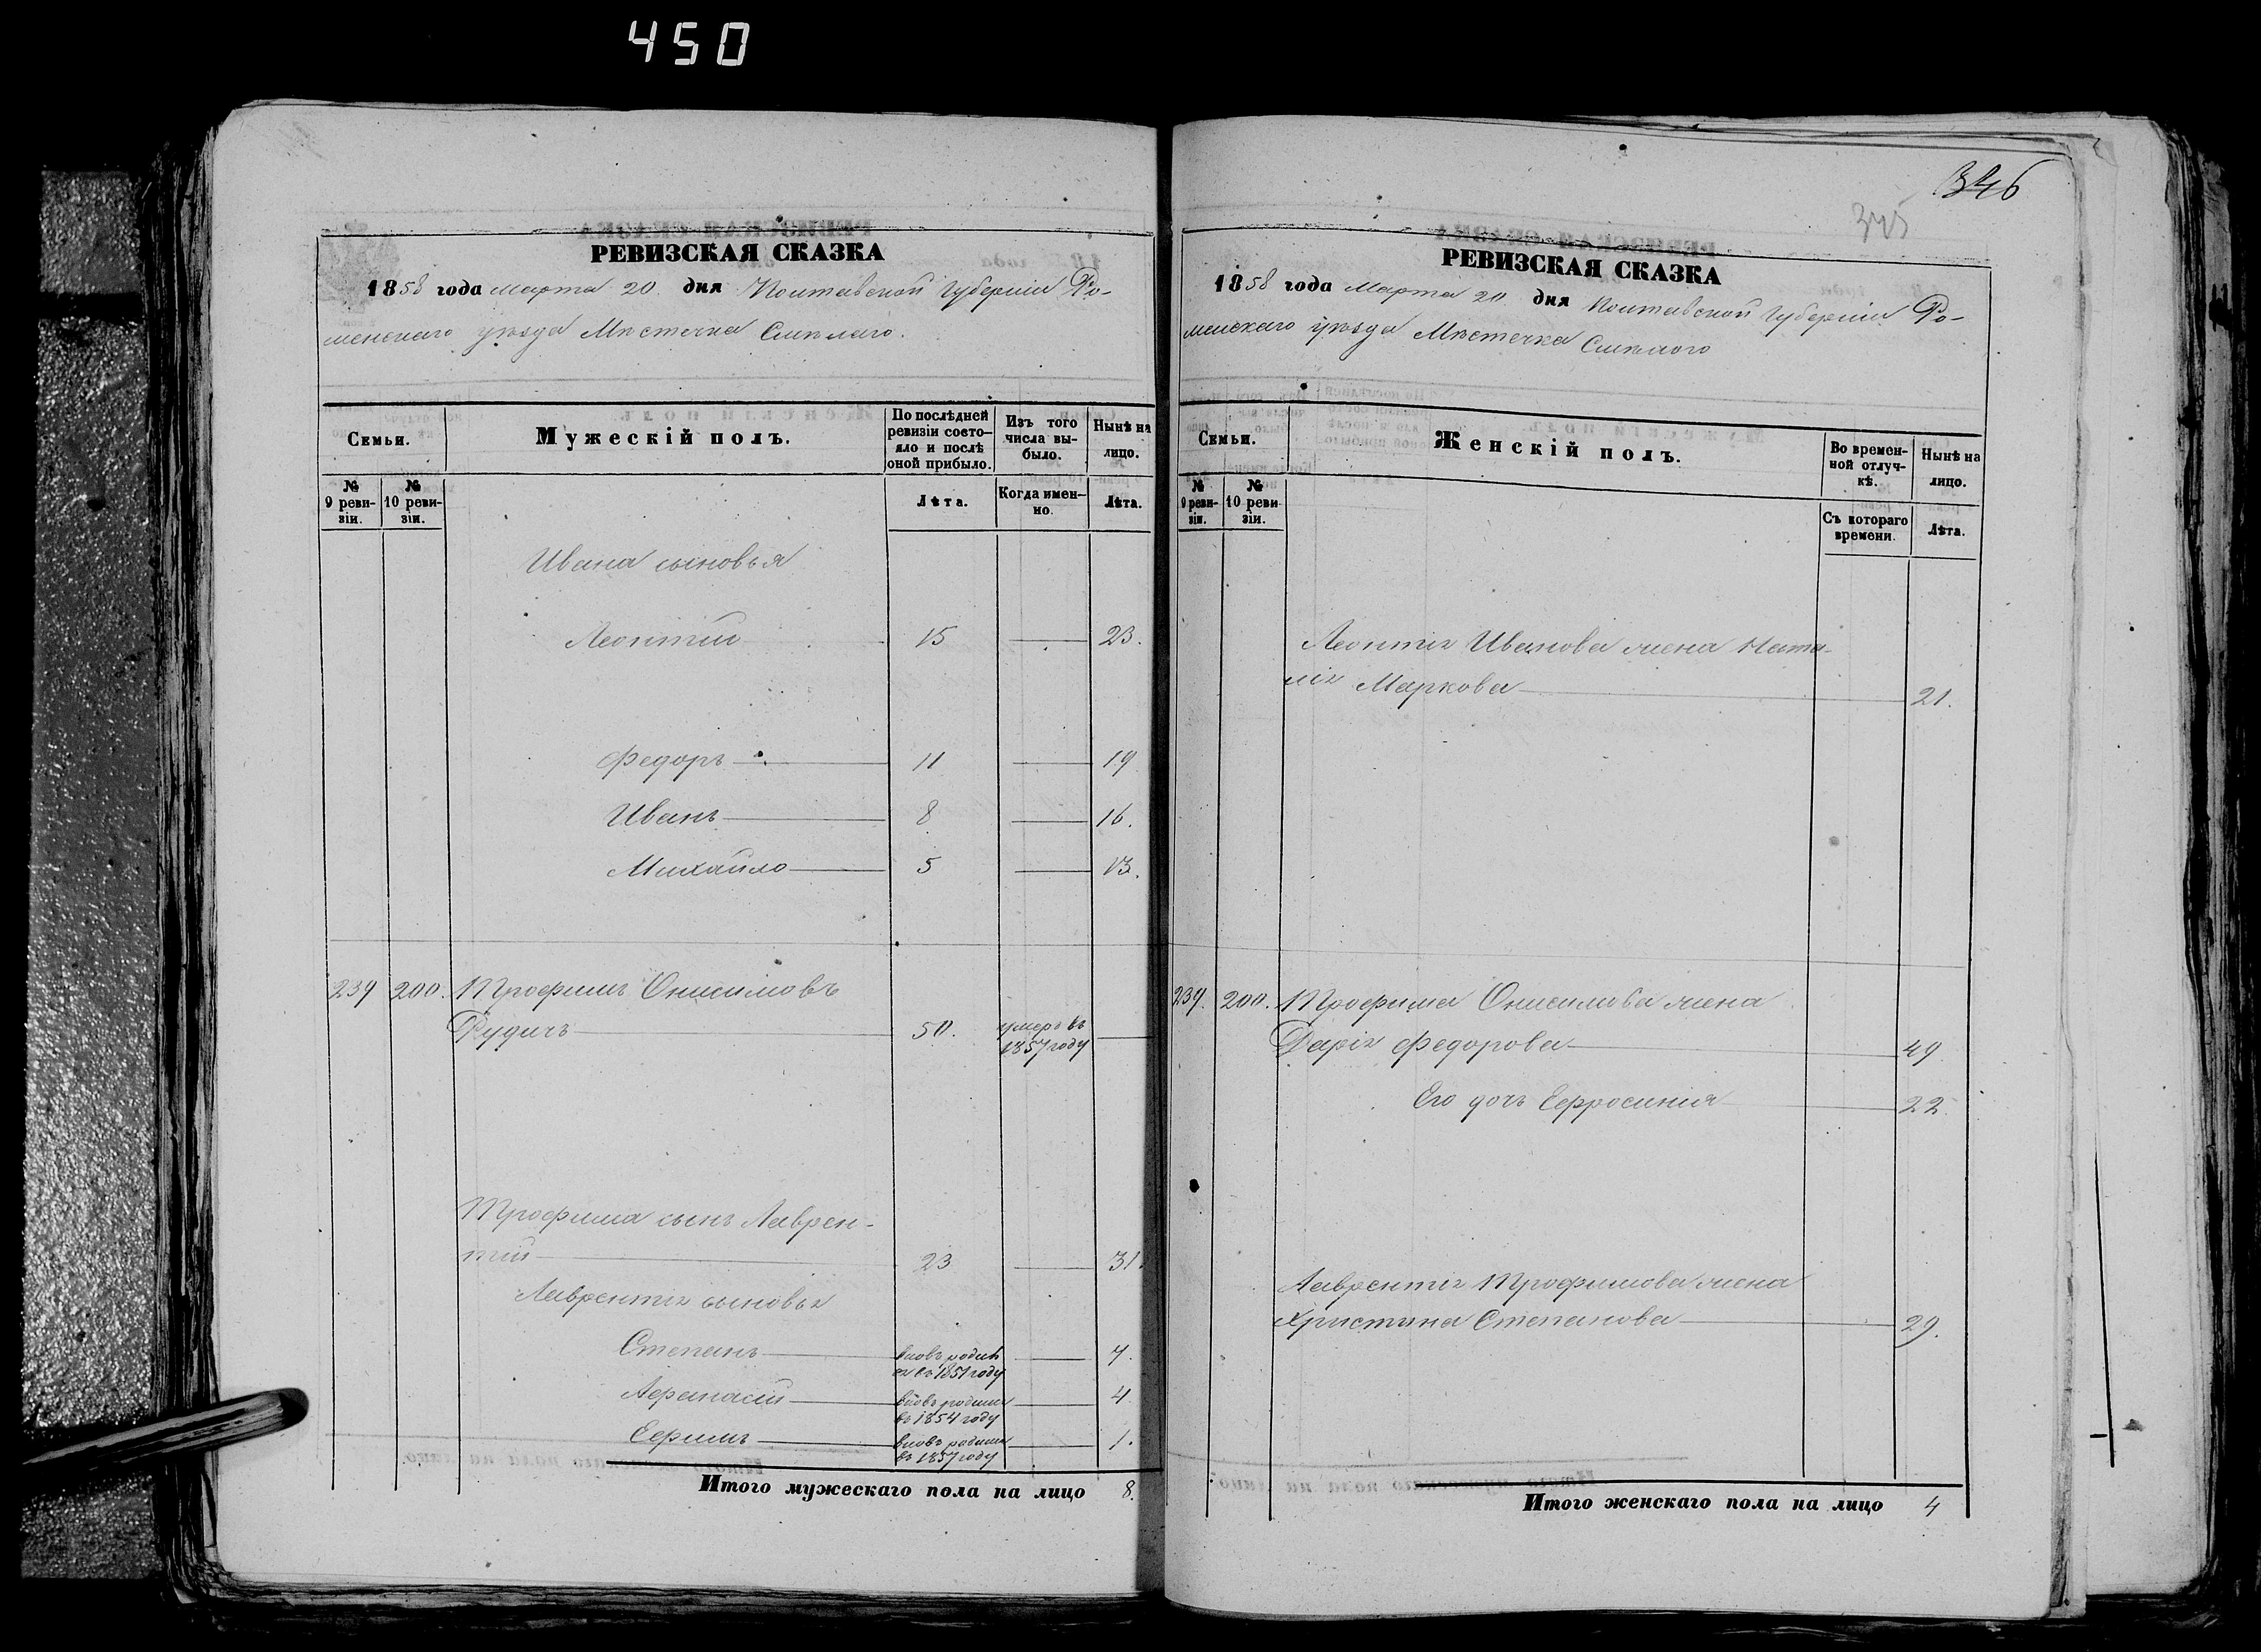 450
346
345
РЕВИЗСКАЯ СКАЗКА
1858 года Марта 20 дня Полтавской Губерніи Ро-
менскаго уѣзда Мѣстечка Смѣлаго.
Семьи.
Мужескій полъ.
По послѣдней ревизіи состо-
яло и послѣ оной прибыло.
Изъ того числа вы-
было.
Нынѣ на лицо.
№ 9 реви-
зіи.
№ 10 реви-
зіи.
Лѣта.
Когда имен-
но.
Лѣта.
Ивана сыновья
Леонтій 15 23.
Федоръ 11 19
Иванъ 8 16.
Михайло 5 13.
239 200. Трофимъ Онисимовъ
Рудичъ 50. умеръ въ
1857 году
Трофима сынъ Лаврен-
тій 23 31.
Лаврентія сыновья
Степанъ вновь родил
ся въ 1851 году 7.
Афанасій вновь родился
въ 1854 году 4
Ефимъ вновь родился
въ 1857 году 1.
Итого мужескаго пола на лицо 8.
РЕВИЗСКАЯ СКАЗКА
1858 года Марта 20 дня Полтавской Губерніи Ро-
менскаго уѣзда Мѣстечка Смѣлого
Семьи.
Женскій полъ.
Во времен-
ной отлуч-
кѣ.
Нынѣ на лицо.
№ 9 реви-
зіи.
№ 10 реви-
зіи.
Съ котораго времени.
Лѣта.
Леонтія Иванова жена Ната-
лія Маркова 21.
239. 200. Трофима Онисимова жена
Дарія Федорова 49
Его дочь Ефросинія 22
Лаврентія Трофимова жена
Христина Степанова 29.
Итого женскаго пола на лицо 4